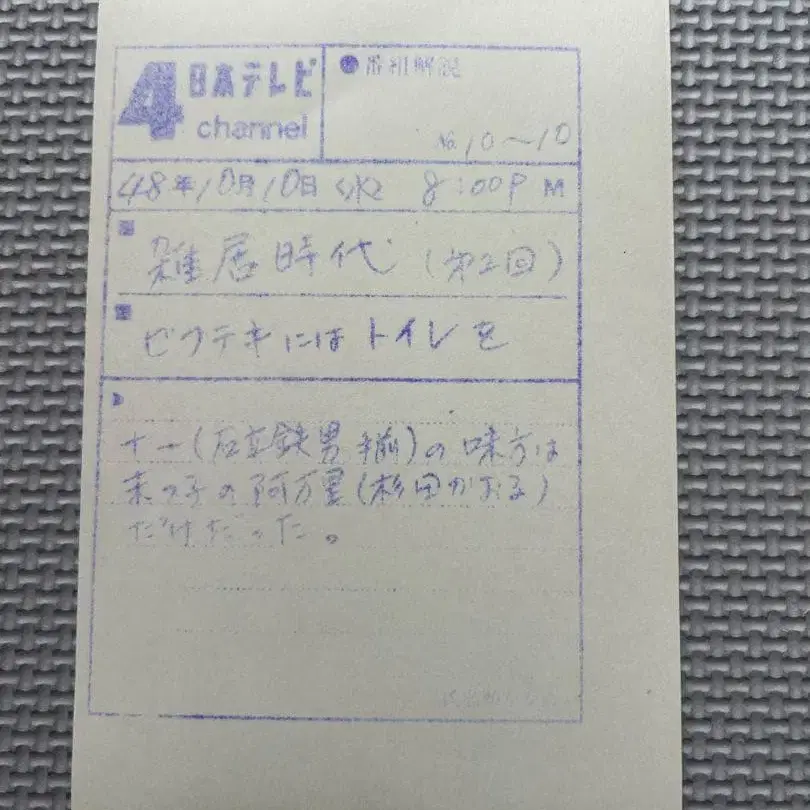 4 日本テレビ
channel
●番組解説
No.10〜10
48年10月10日(水) 8:00P M
雑居時代(第2回)
ビフテキにはトイレを
十一(石立鉄男
)の味方は
末っ子の阿万里(杉田かおる)
だけだった。